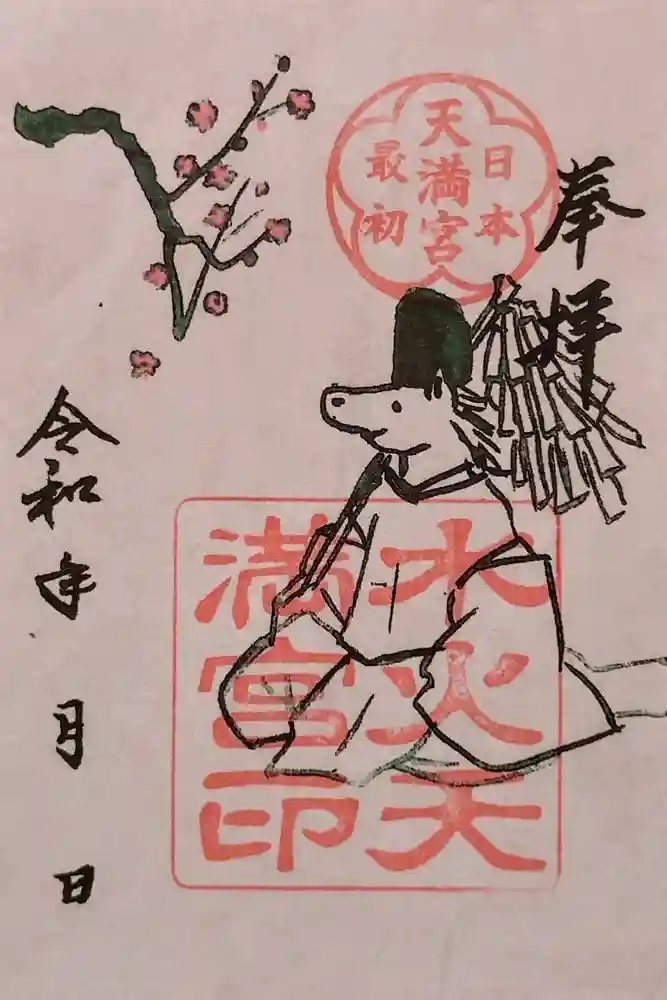 奉拝
日本
天満宮
最初
水火天
満宮印
令和年月日